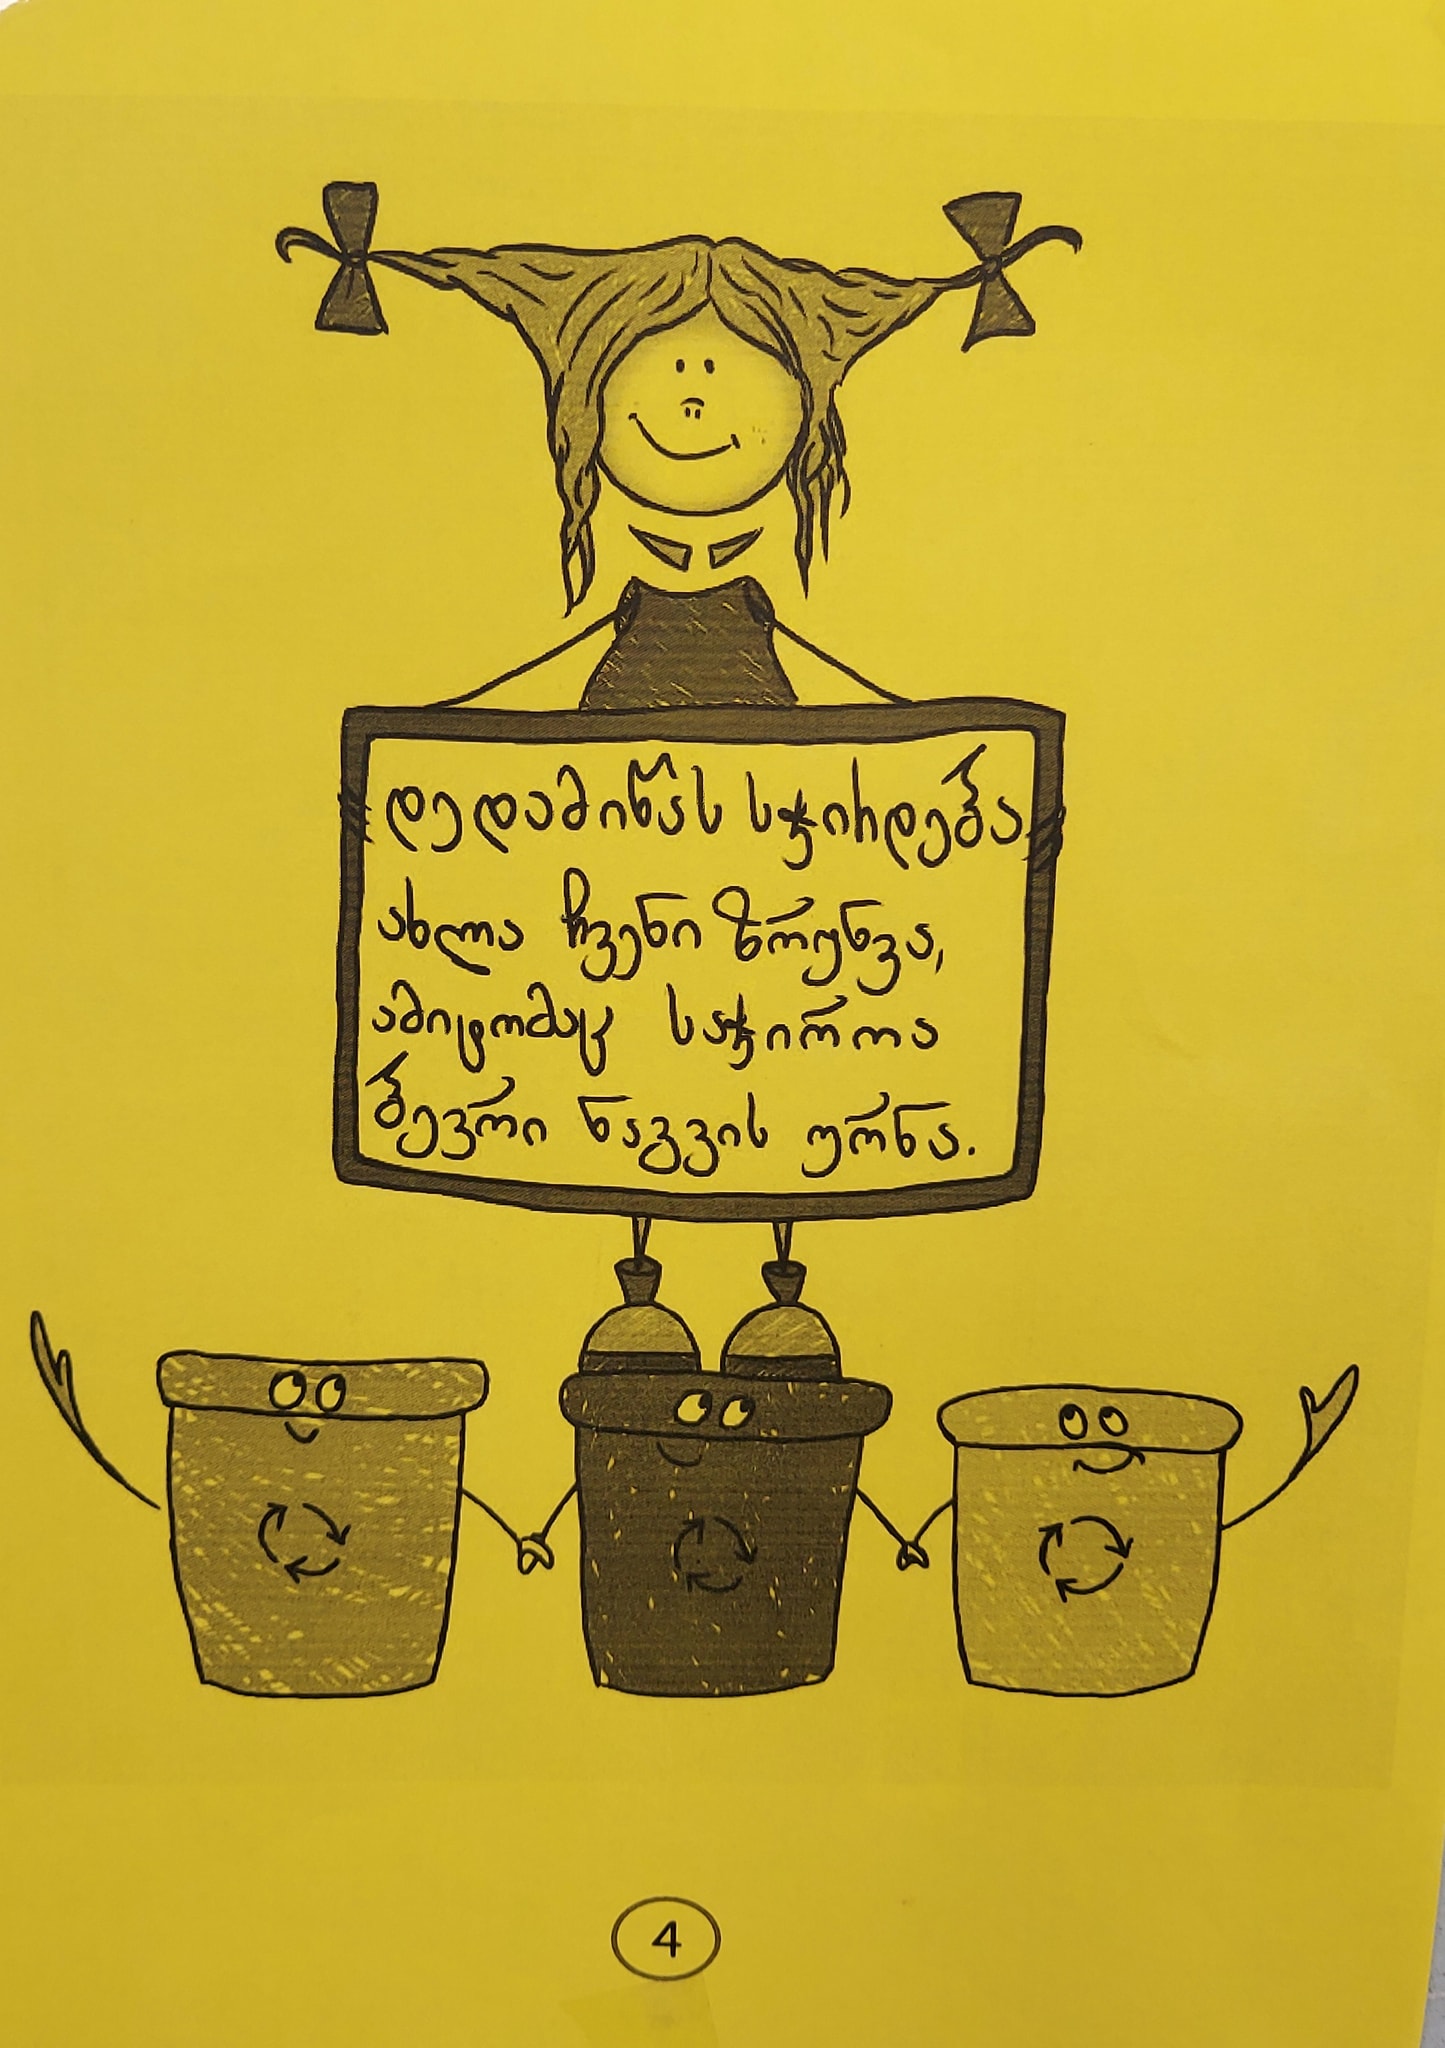 დედამიწას სჭირდება
ახლა ჩვენი ზრუნვა,
ამიტომაც საჭიროა
ბევრი ნაგვის ურნა.
4